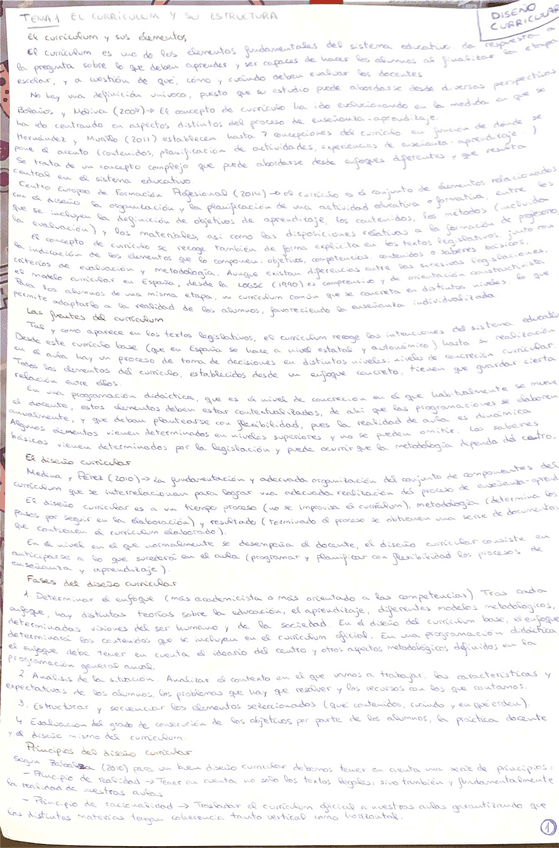 TEMA 1 EL CURRÍCULUM Y SU ESTRUCTURA
DISEÑO CURRICULAR
El currículum y sus elementos
El currículum es uno de los elementos fundamentales del sistema educativo da respuesta a
la pregunta sobre lo que deben aprender y ser capaces de hacer los alumnos al finalizar la etapa
escolar, y a cuestión de qué, cómo y cuándo deben evaluar los docentes
No hay una definición unívoca, puesto que su estudio puede abordarse desde diversas perspectivas
Bolaños y Molina (2007) → El concepto de currículo ha ido evolucionando en la medida en que se
ha ido centrando en aspectos distintos del proceso de enseñanza-aprendizaje.
Hernández y Murillo (2011) establecen hasta 7 concepciones del currículo en función de donde se
pone el acento (contenidos, planificación de actividades, experiencias de enseñanza-aprendizaje)
Se trata de un concepto complejo que puede abordarse desde enfoques diferentes y que resulta
central en el sistema educativo
Centro Europeo de Formación Profesional (2014) → el currículo es el conjunto de elementos relacionados
con el diseño la organización y la planificación de una actividad educativa o formativa, entre los
que se incluyen la definición de objetivos de aprendizaje, los contenidos, los métodos (incluida
la evaluación) y los materiales, así como las disposiciones relativas a la formación de profesores
El concepto de currículo se recoge también de forma explícita en los textos legislativos, junto con
la indicación de los elementos que lo componen: objetivos, competencias, contenidos o saberes básicos,
criterios de evaluación y metodología. Aunque existan diferencias entre las sucesivas legislaciones,
el modelo curricular en España, desde la LOGSE (1990) es comprensivo y de orientación constructivista
Para los alumnos de una misma etapa, un currículum común que se concreta en distintos niveles lo que
permite adaptarlo a la realidad de los alumnos, favoreciendo la enseñanza individualizada
Las fuentes del currículum
Tal y como aparece en los textos legislativos, el currículum recoge las intenciones del sistema educativo
Desde este currículo base (que en España se hace a nivel estatal y autonómico) hasta su realización
en el aula hay un proceso de toma de decisiones en distintos niveles: niveles de concreción curricular.
Todos los elementos del currículo, establecidos desde un enfoque concreto, tienen que guardar cierta
relación entre ellos.
En una programación didáctica, que es el nivel de concreción en el que habitualmente se mueve
el docente, estos elementos deben estar contextualizados, de ahí que las programaciones se elaboren
anualmente, y que deban plantearse con flexibilidad, pues la realidad de aula es dinámica
Algunos elementos vienen determinados en niveles superiores y no se pueden omitir. Los saberes
básicos vienen determinados por la legislación y puede ocurrir que la metodología dependa del centro.
El diseño curricular
Medina y Pérez (2010) → La fundamentación y adecuada organización del conjunto de componentes del
currículum que se interrelacionan para lograr una adecuada realización del proceso de enseñanza-aprend
El diseño curricular es a un tiempo proceso (no se improvisa el currículum), metodología (determina los
pasos por seguir en la elaboración) y resultado (terminado el proceso se obtienen una serie de documentos
que contienen el currículum elaborado).
En el nivel en el que normalmente se desempeña el docente, el diseño curricular consiste en
anticiparse a lo que sucederá en el aula (programar y planificar con flexibilidad los procesos de
enseñanza y aprendizaje).
Fases del diseño curricular
1 Determinar el enfoque (más academicista o más orientado a las competencias) Tras cada
enfoque, hay distintas teorías sobre la educación, el aprendizaje, diferentes modelos metodológicos,
determinadas visiones del ser humano y de la sociedad. En el diseño del currículum base, el enfoque
determinará los contenidos que se incluyen en el currículum oficial. En una programación didáctica,
el enfoque debe tener en cuenta el ideario del centro y otros aspectos metodológicos definidos en la
programación general anual.
2 Análisis de la situación. Analizar el contexto en el que vamos a trabajar, las características y
expectativas de los alumnos, los problemas que hay que resolver y los recursos con los que contamos.
3. Estructurar y secuenciar los elementos seleccionados (qué contenidos, cuándo y en qué orden).
4 Evaluación del grado de consecución de los objetivos por parte de los alumnos, la práctica docente
y el diseño mismo del currículum.
Principios del diseño curricular
Según Zabalza (2010) para un buen diseño curricular debemos tener en cuenta una serie de principios.
- Principio de realidad → Tener en cuenta no sólo los textos legales, sino también y fundamentalmente
la realidad de nuestras aulas
- Principio de racionalidad → Trasladar el currículum oficial a nuestras aulas garantizando que
las distintas materias tengan coherencia tanto vertical como horizontal.
1